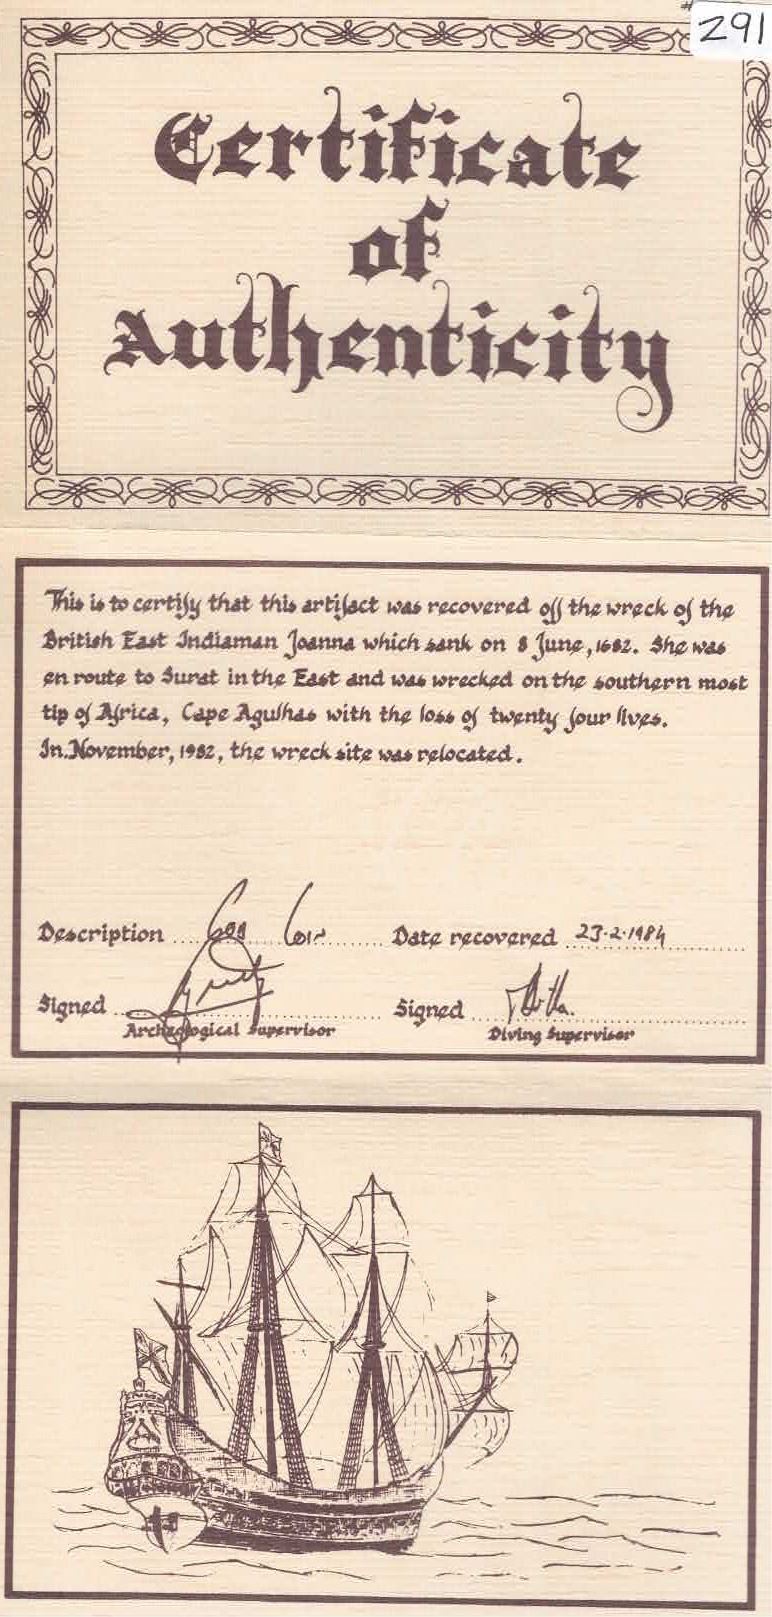 # 291
Certificate
of
Authenticity
This is to certify that this artifact was recovered off the wreck of the
British East Indiaman Joanna which sank on 8 June, 1682. She was
en route to Surat in the East and was wrecked on the southern most
tip of Africa, Cape Agulhas with the loss of twenty four lives.
In November, 1982, the wreck site was relocated.
Description Date recovered 23.2.1984
Signed Signed
Archeological Supervisor Diving Supervisor